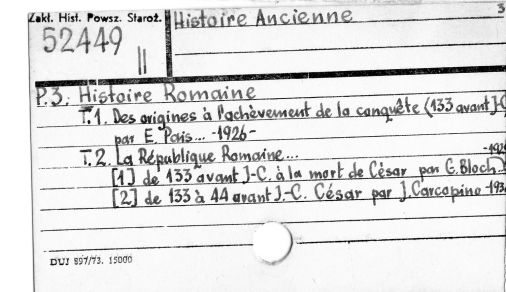 Zakł. Hist. Powsz. Staroż.
Histoire Ancienne
3
52449
II
P.3. Histoire Romaine
T.1. Des origines à l'achèvement de la conquête (133 avant J-C
par E. Pais... -1926-
T.2. La République Romaine...
[1] de 133 avant J-C. à la mort de César par G. Bloch..
[2] de 133 à 44 avant J.-C. César par J. Carcopino -193
DUJ 897/73. 15000